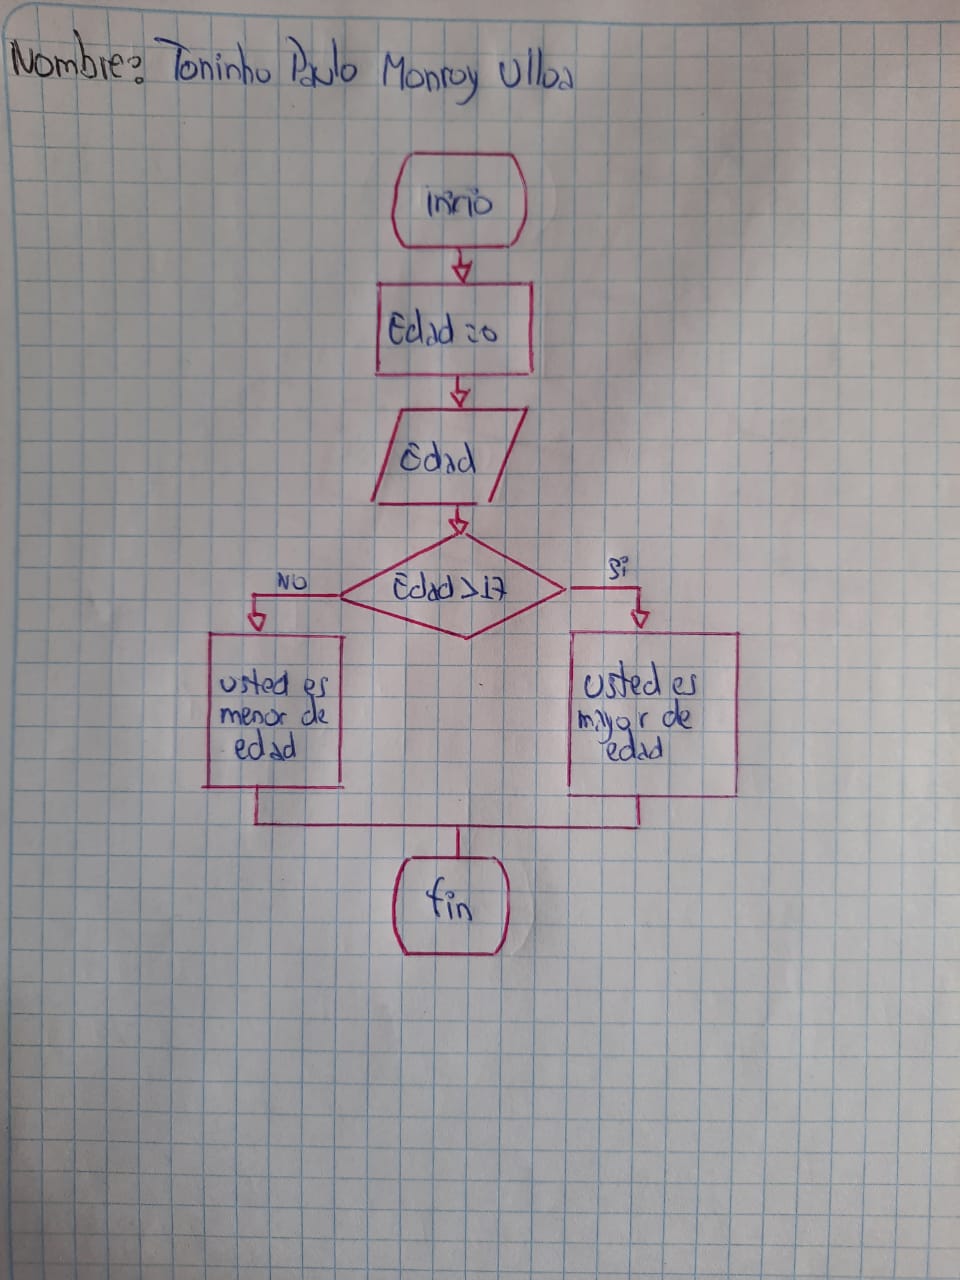 Nombre: Toninho Paulo Monroy Ulloa
inicio
Edad = 0
Edad
Edad > 17
NO
Si
usted es
menor de
edad
usted es
mayor de
edad
fin